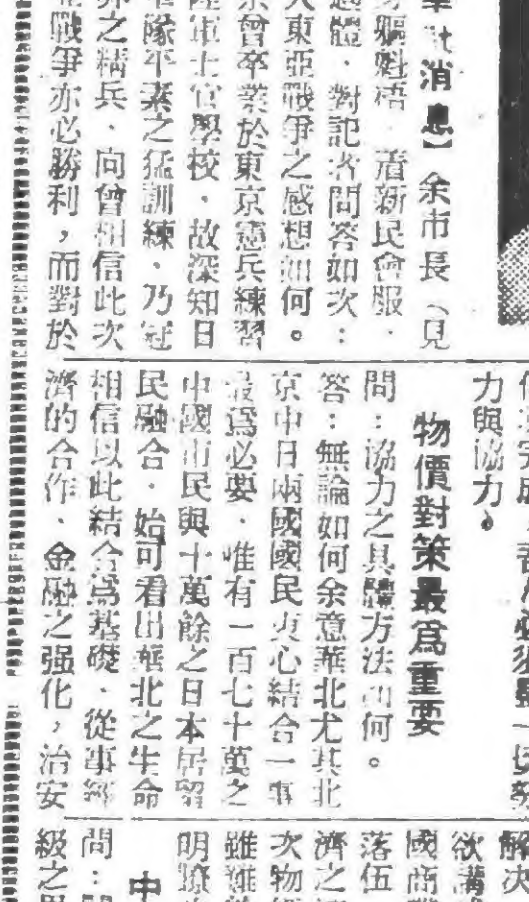 消息】余市長（見
軀魁梧．着新民會服．
體．對記者問答如次：
大東亞戰爭之感想如何。
曾卒業於東京憲兵練習
陸軍士官學校．故深知日
隊平素之猛訓練．乃冠
之精兵．向曾相信此次
戰爭亦必勝利，而對於
力與協力。
物價對策最爲重要
問：協力之具體方法如何。
答：無論如何余意華北尤其北
京中日兩國國民衷心結合一事
最爲必要．唯有一百七十萬之
中國市民與十萬餘之日本居留
民融合．始可看出華北之生命
相信以此結合爲基礎．從事經
濟的合作．金融之强化，治安
解決
欲講
國商
落伍
濟之
次物
雖
明瞭
中
問：
級之